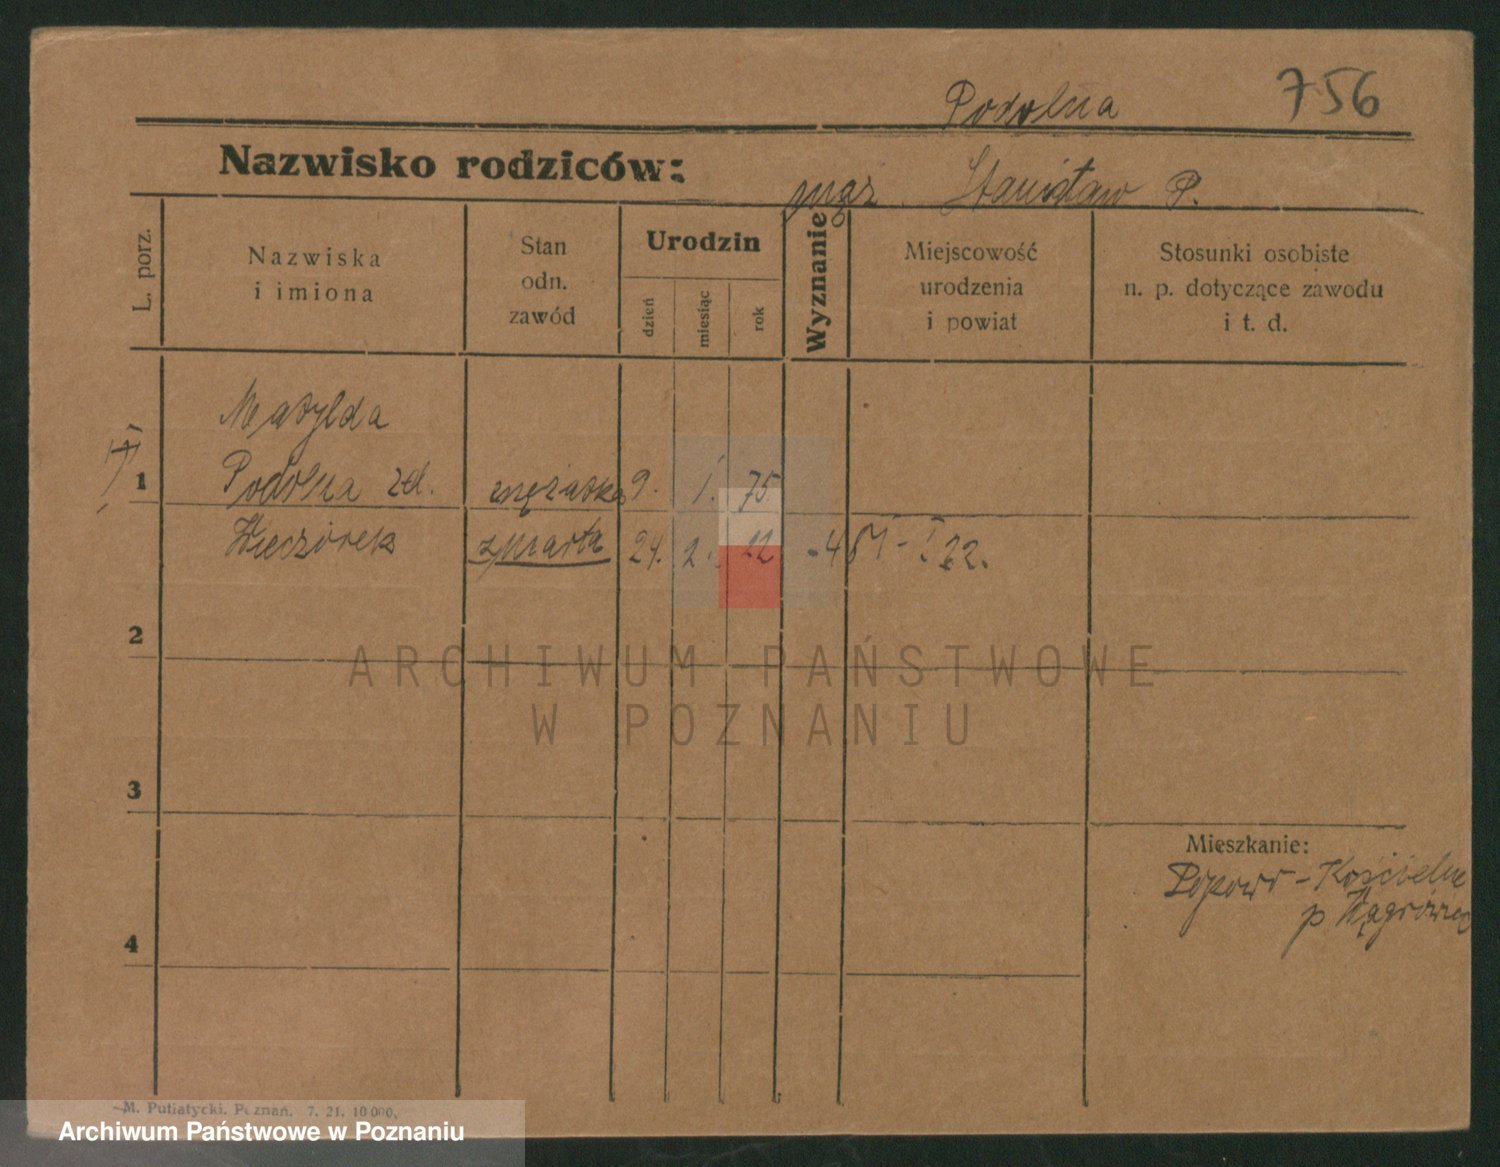 Podolna
756
Nazwisko rodziców:
mąż Stanisław P.
L. porz.
Nazwiska
i imiona
Stan
odn.
zawód
Urodzin
dzień
miesiąc
rok
Wyznanie
Miejscowość
urodzenia
i powiat
Stosunki osobiste
n. p. dotyczące zawodu
i t. d.
Matylda
1 Podolna zd. mężatka 9. 1. 75
Wieczorek zmarła 24. 2. 22 22.
2
3
4
Mieszkanie:
Popowo-Kościelne
p Wągrowiec
ARCHIWUM PAŃSTWOWE
W POZNANIU
M. Putiatycki, Poznań. 7. 21. 10 000.
Archiwum Państwowe w Poznaniu